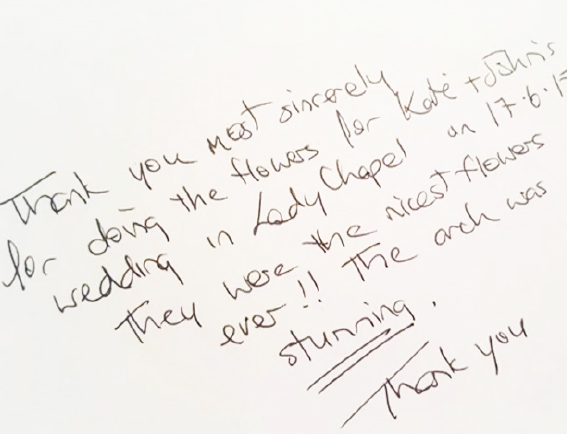 Thank you most sincerely
for doing the flowers for Kate + John's
wedding in Lady Chapel on 17.6.17
They were the nicest flowers
ever!! The arch was
stunning.
Thank you